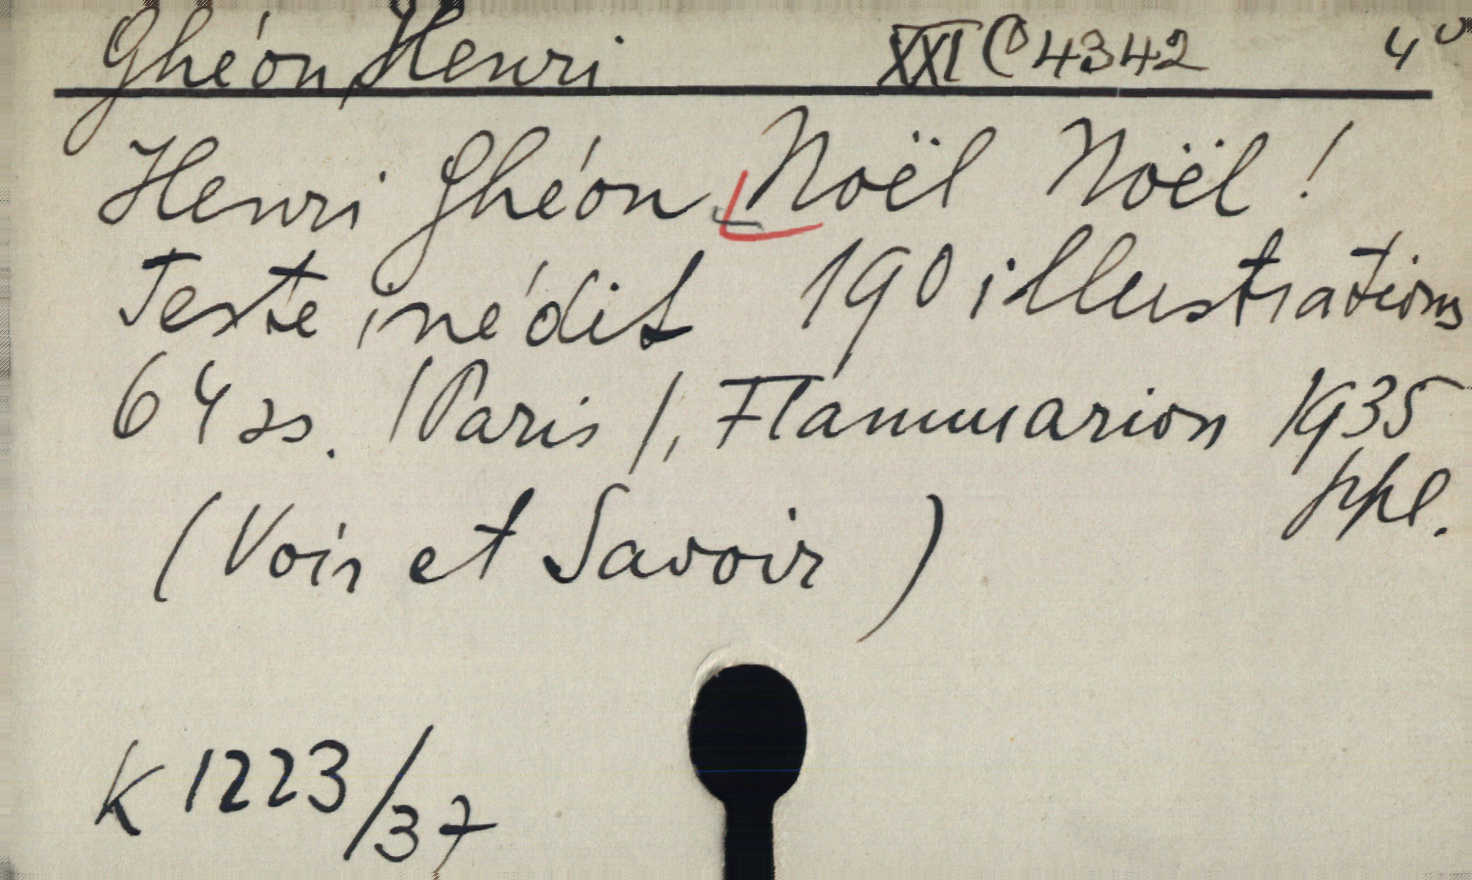 Ghéon Henri XXI C 4342 4°
Henri Ghéon Noël Noël!
Texte inédit 190 illustrations
64 ss. /Paris/, Flammarion 1935
ppl.
(Voir et Savoir)
K 1223/37